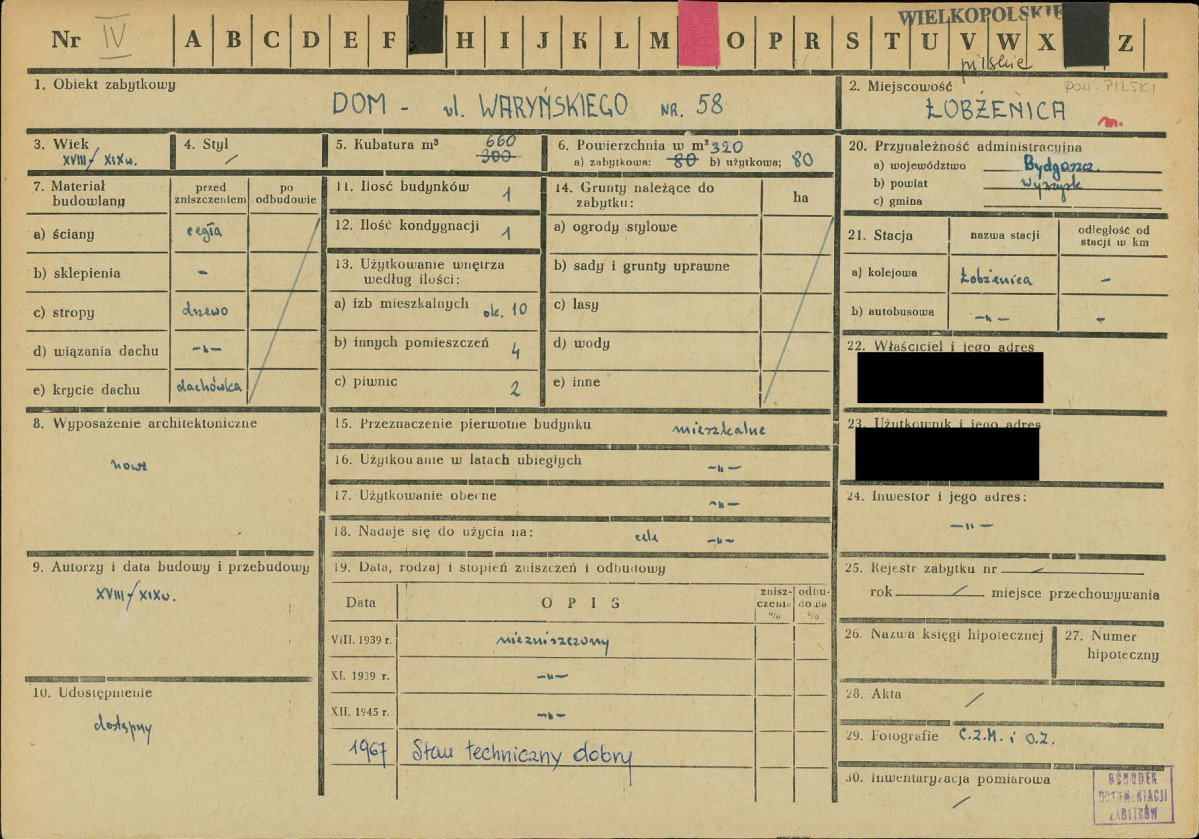 WIELKOPOLSKIE
Nr IV A B C D E F H I J K L M O P R S T U V W X Z
pilskie
1. Obiekt zabytkowy
DOM - ul. WARYŃSKIEGO NR. 58
2. Miejscowość POW. PILSKI
ŁOBŻENICA m.
3. Wiek
XVIII/XIXw.
4. Styl
/
5. Kubatura m³ 660
300
6. Powierzchnia w m² 320
a) zabytkowa: 80 b) użytkowa; 80
20. Przynależność administracyjna
a) województwo Bydgoszcz
b) powiat Wyrzysk
c) gmina
7. Materiał budowlany
przed zniszczeniem
po odbudowie
a) ściany cegła
b) sklepienia -
c) stropy drzewo
d) wiązania dachu -"-
e) krycie dachu dachówka
11. Ilość budynków 1
12. Ilość kondygnacji 1
13. Użytkowanie wnętrza
według ilości:
a) izb mieszkalnych ok. 10
b) innych pomieszczeń 4
c) piwnic 2
14. Grunty należące do
zabytku: ha
a) ogrody stylowe
b) sady i grunty uprawne
c) lasy
d) wody
e) inne
21. Stacja nazwa stacji odległość od
stacji w km
a) kolejowa Łobżenica -
b) autobusowa -"- -
22. Właściciel i jego adres
23. Użytkownik i jego adres
8. Wyposażenie architektoniczne
nowe
15. Przeznaczenie pierwotne budynku mieszkalne
16. Użytkowanie w latach ubiegłych -"-
17. Użytkowanie obecne -"-
18. Nadaje się do użycia na: cele -"-
24. Inwestor i jego adres:
-"-
9. Autorzy i data budowy i przebudowy
XVIII/XIXw.
19. Data, rodzaj i stopień zniszczeń i odbudowy
Data OPIS znisz-
czenia
% odbu-
dowa
%
VIII. 1939 r. niezniszczony
XI. 1939 r. -"-
XII. 1945 r. -"-
1967 Stan techniczny dobry
25. Rejestr zabytku nr /
rok / miejsce przechowywania
26. Nazwa księgi hipotecznej
27. Numer
hipoteczny
10. Udostępnienie
dostępny
28. Akta /
29. Fotografie C.Z.M. i O.Z.
30. Inwentaryzacja pomiarowa
/
OŚRODEK
DOKUMENTACJI
ZABYTKÓW